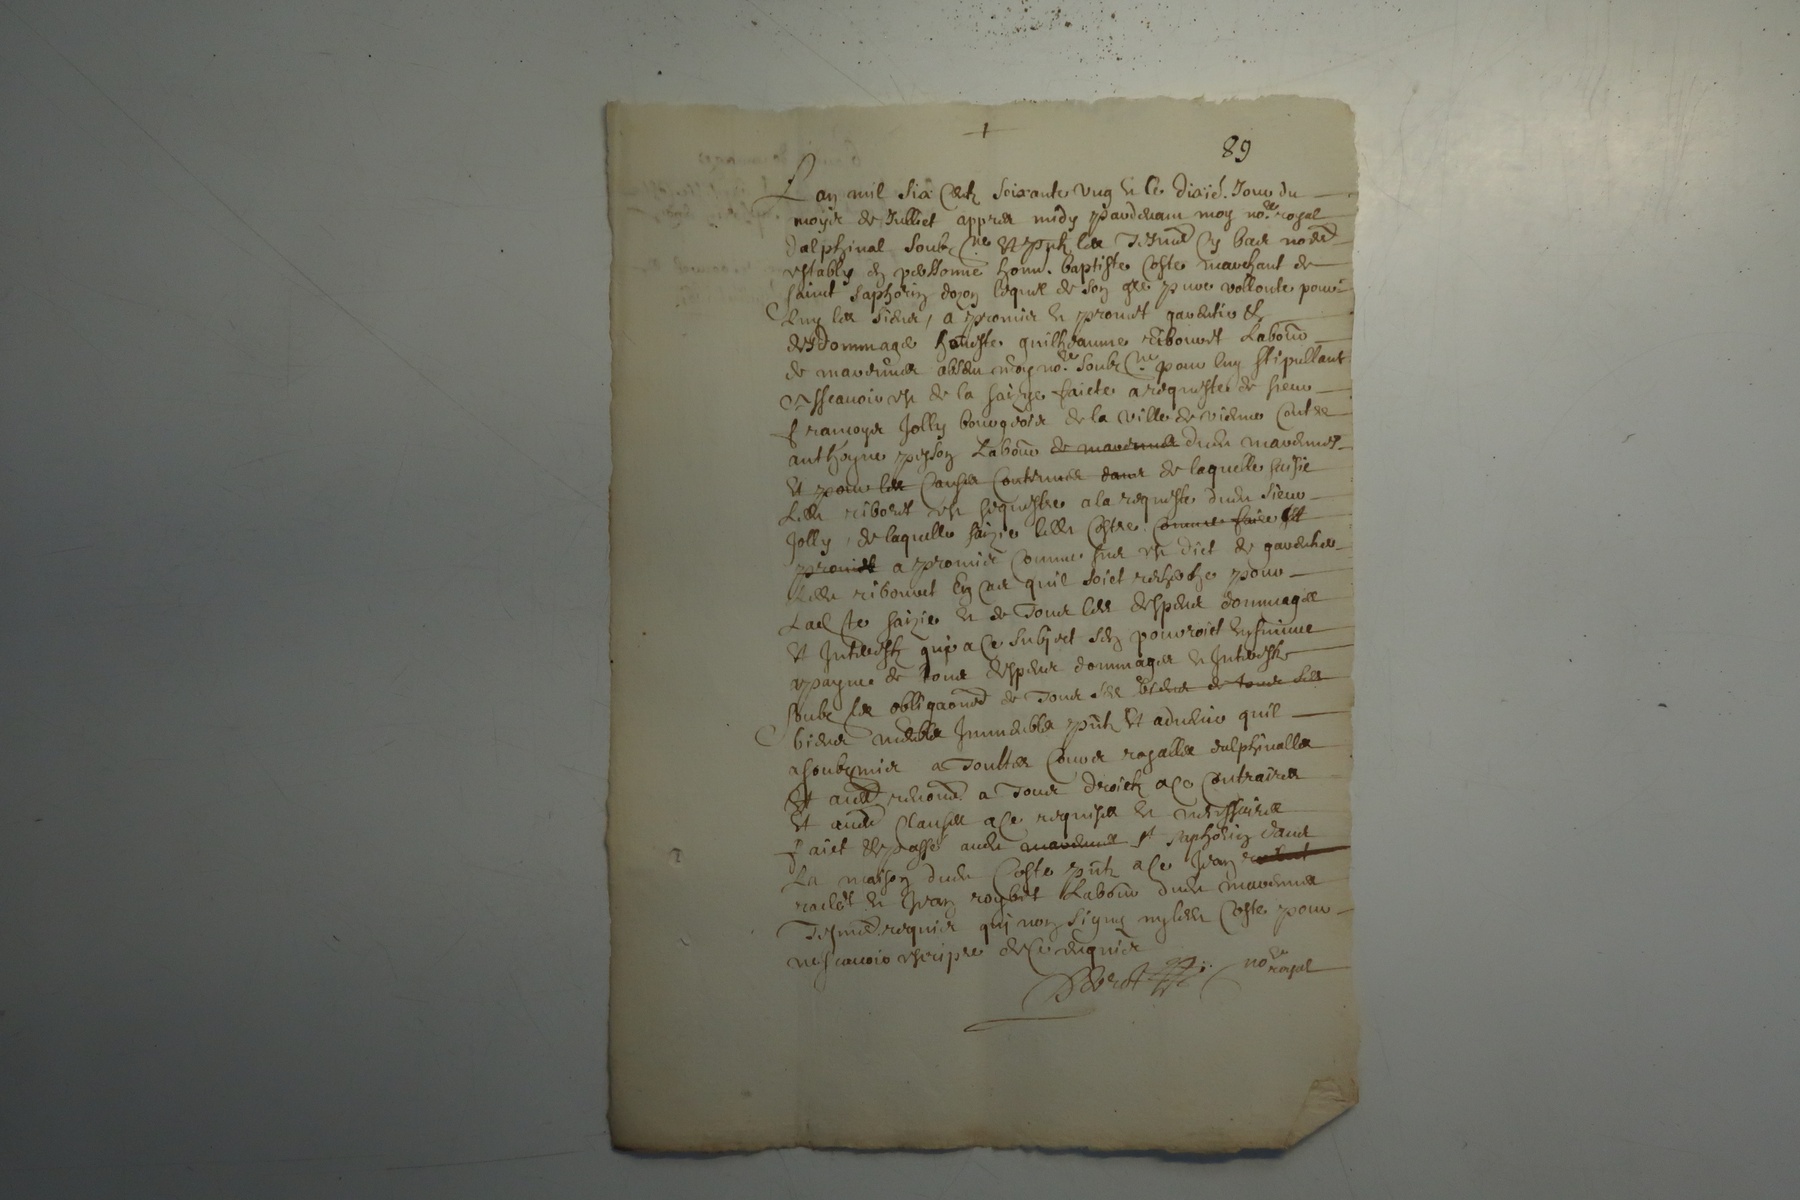 89
L an mil six centz seixante ung et le dixie. Jour du
moys de Julliet appres midy pardevant moy no.re royal
dalphinal soubz.ne et pntz les tesmes cy bas nomes
estably en personne honn. baptiste Coste marchant de
saint saphorin dozon lequel de son gre pure vollonte pour
luy les siens, a promis et promet garentir et
desdommage honeste guilheaume ribouet Labour
de marennes absen moy no.re soubz.ne pour luy stipullant
Asscavoir est de la saizie faicte a requeste de sieur
francoys Jolly bourgeois de la ville de vienne contre
anthoyne peyson Labour de marennes dudit marennes
Et pour les causes contenues dans de laquelle saisie
Ledit ribouet est sequestre a la requeste dudit sieur
Jolly, de laquelle saizie ledit Coste comme faire est
promis a promis comme sus est dict de garentir
Ledit ribouet en cas quil soict recherche pour
Lad.te saizie et de tous les despens dommages
Et Interestz que a ce subject sen pourroict ensuivre
apayne de tous despens dommages et Interestz
soubz les obligaons de tous ses biens et tous ses
biens meubles Immeubles pntz Et advenir quil
a soubzmis a touttes Cours royalles dalphinalles
Et aues renonce a tous droictz a ce contraires
Et aues clauses a ce requises et necessaires
faict et passe audit marennes st saphorin dans
La maison dudit Coste pntz a ce Jean
et Jean roybet Labour dudit marennes
Tesmes requis qui non signe ny ledit Coste pour
ne scavoir escripre de ce enquis
no.re royal